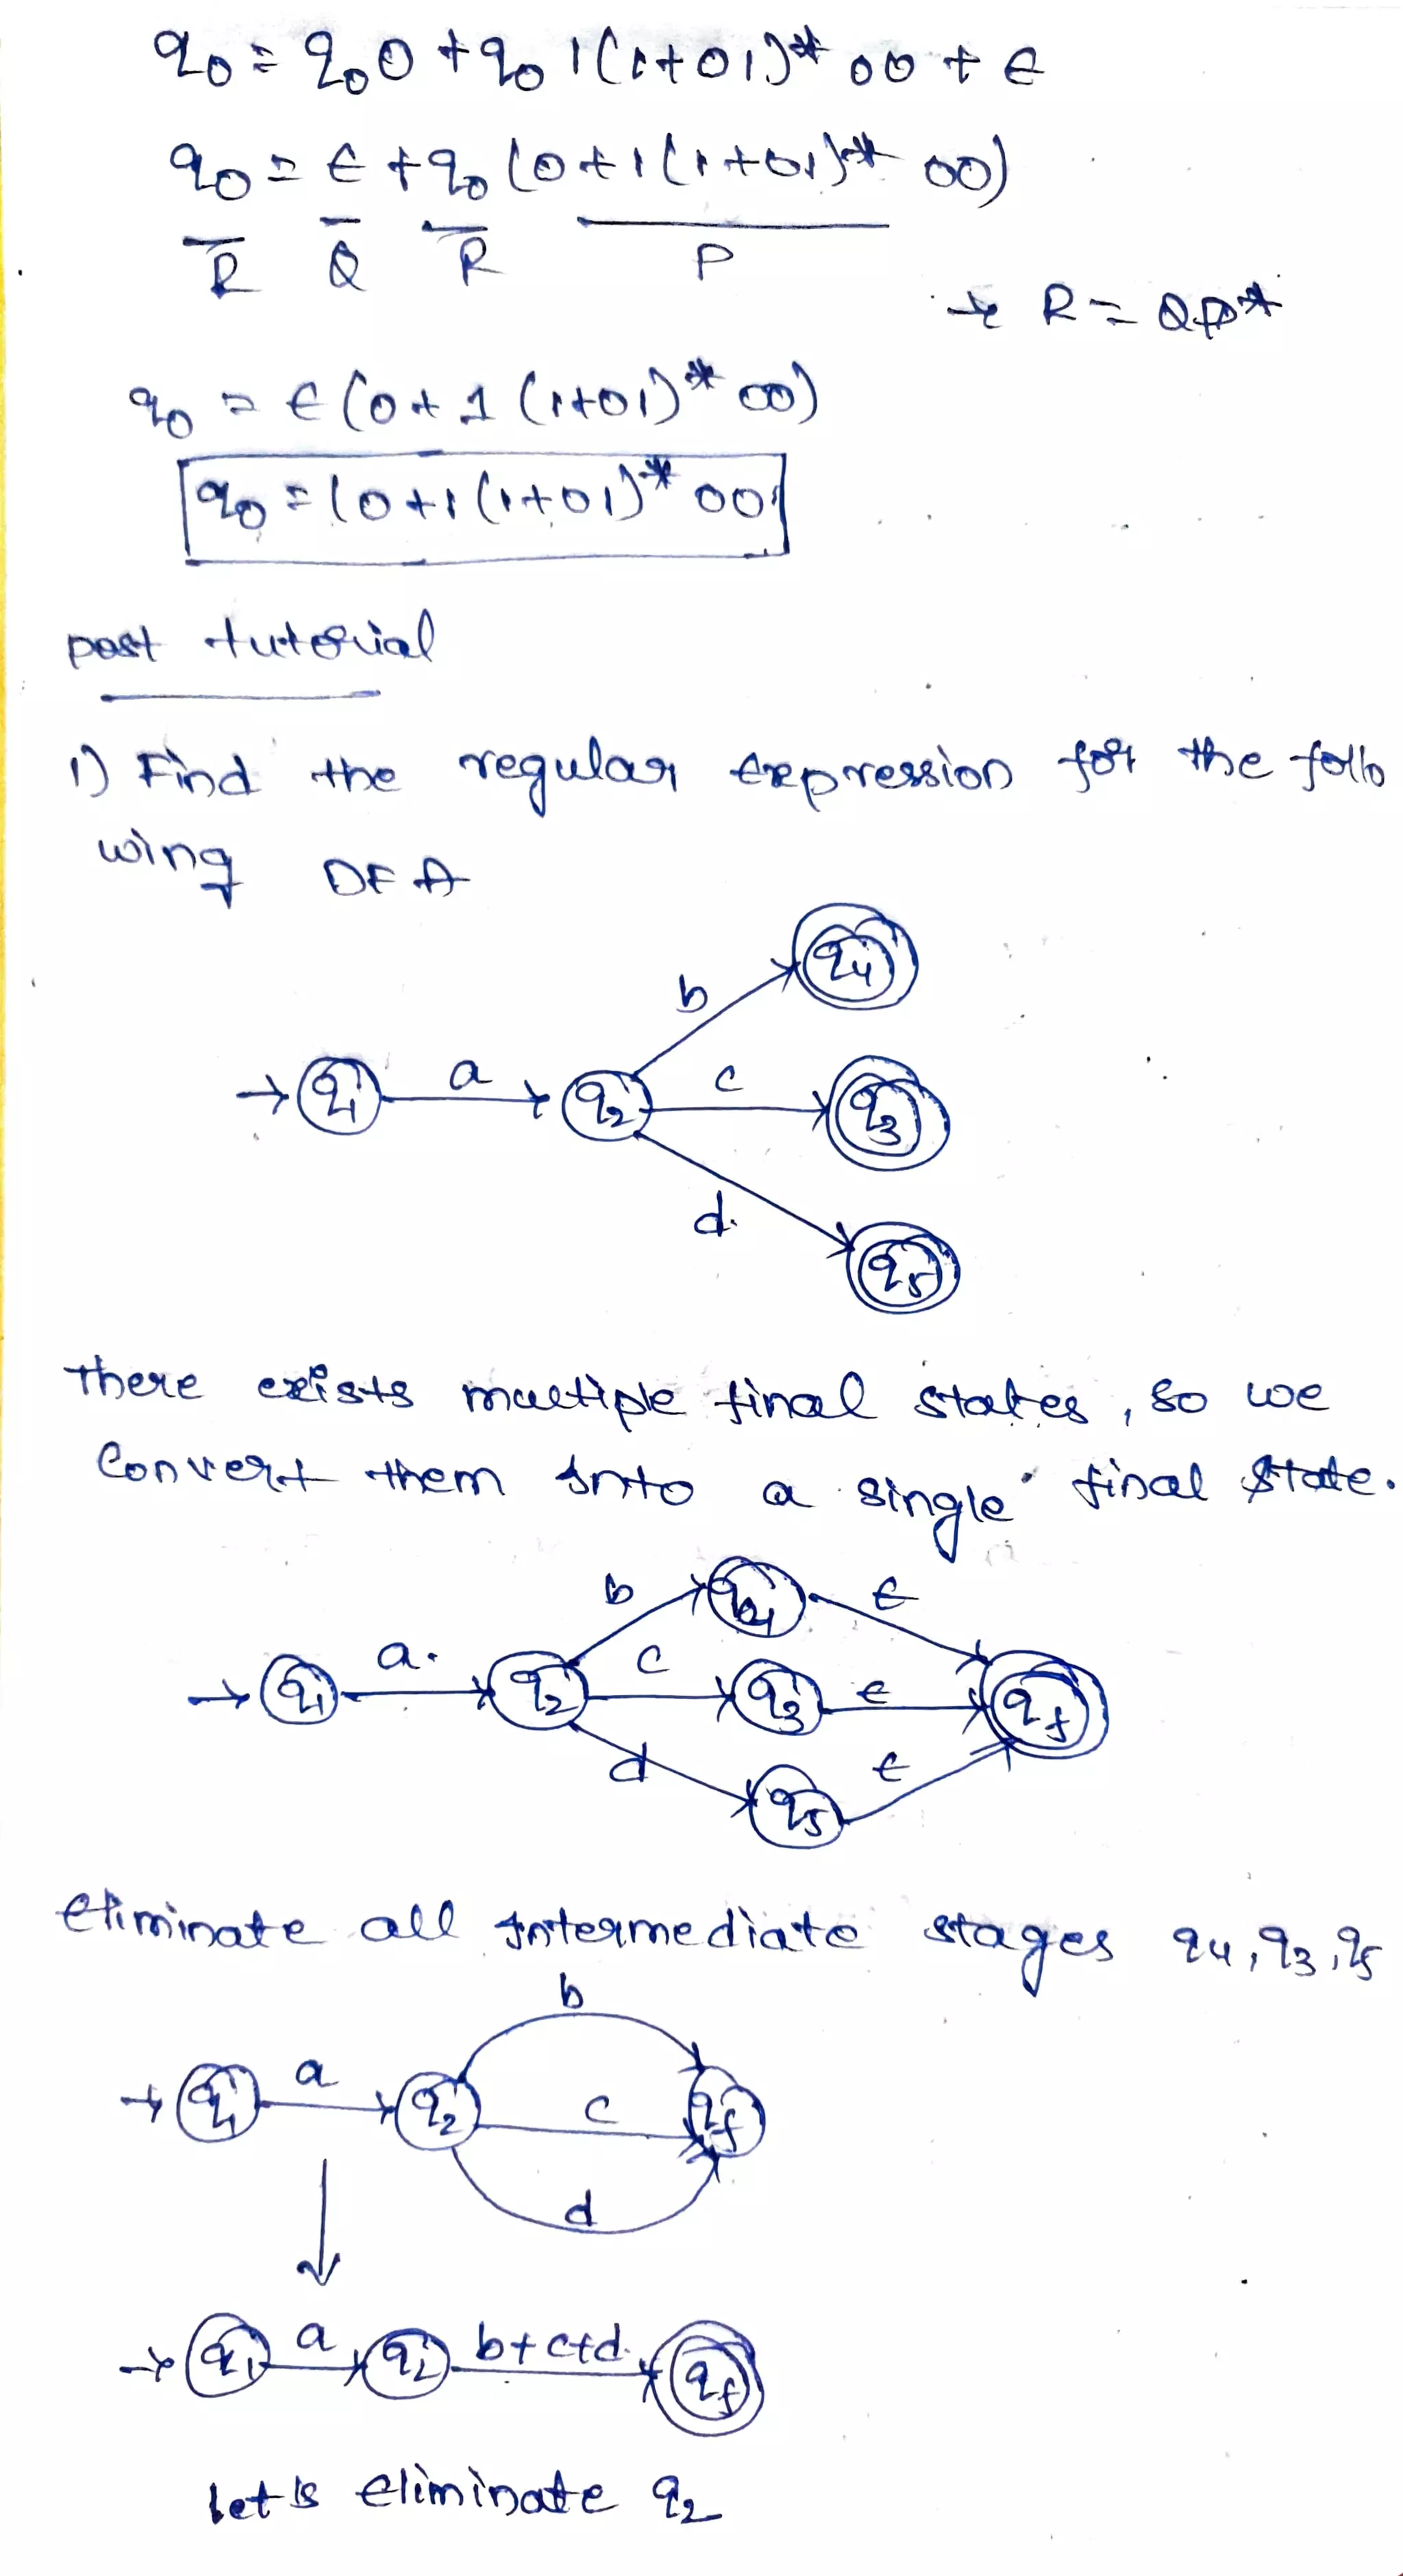 q0 = q00 + q0 1(1+01)* 00 + ε
q0 = ε + q0 (0+1(1+01)* 00)
R Q R P
→ R = QP*
q0 = ε(0+1(1+01)* 00)
q0 = (0+1(1+01)* 00)
post tutorial
1) Find the regular expression for the follo
wing DFA
b
q4
→ q1 a q2 c q3
d
q5
There exists multiple final states, so we
Convert them into a single final state.
b q4 ε
→ q1 a q2 c q3 ε qf
d q5 ε
eliminate all intermediate stages q4, q3, q5
b
→ q1 a q2 c qf
d
→ q1 a q2 b+c+d qf
let's eliminate q2